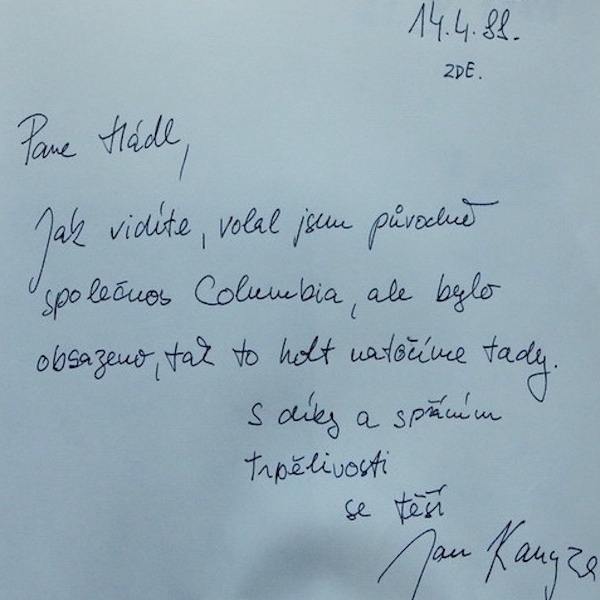 14.4.88.
ZDE.
Pane Hádl,
Jak vidíte, volal jsem původně
společnos Columbia, ale bylo
obsazeno, tak to holt natočíme tady.
s díky a s přáním
trpělivosti
se těší
Jan